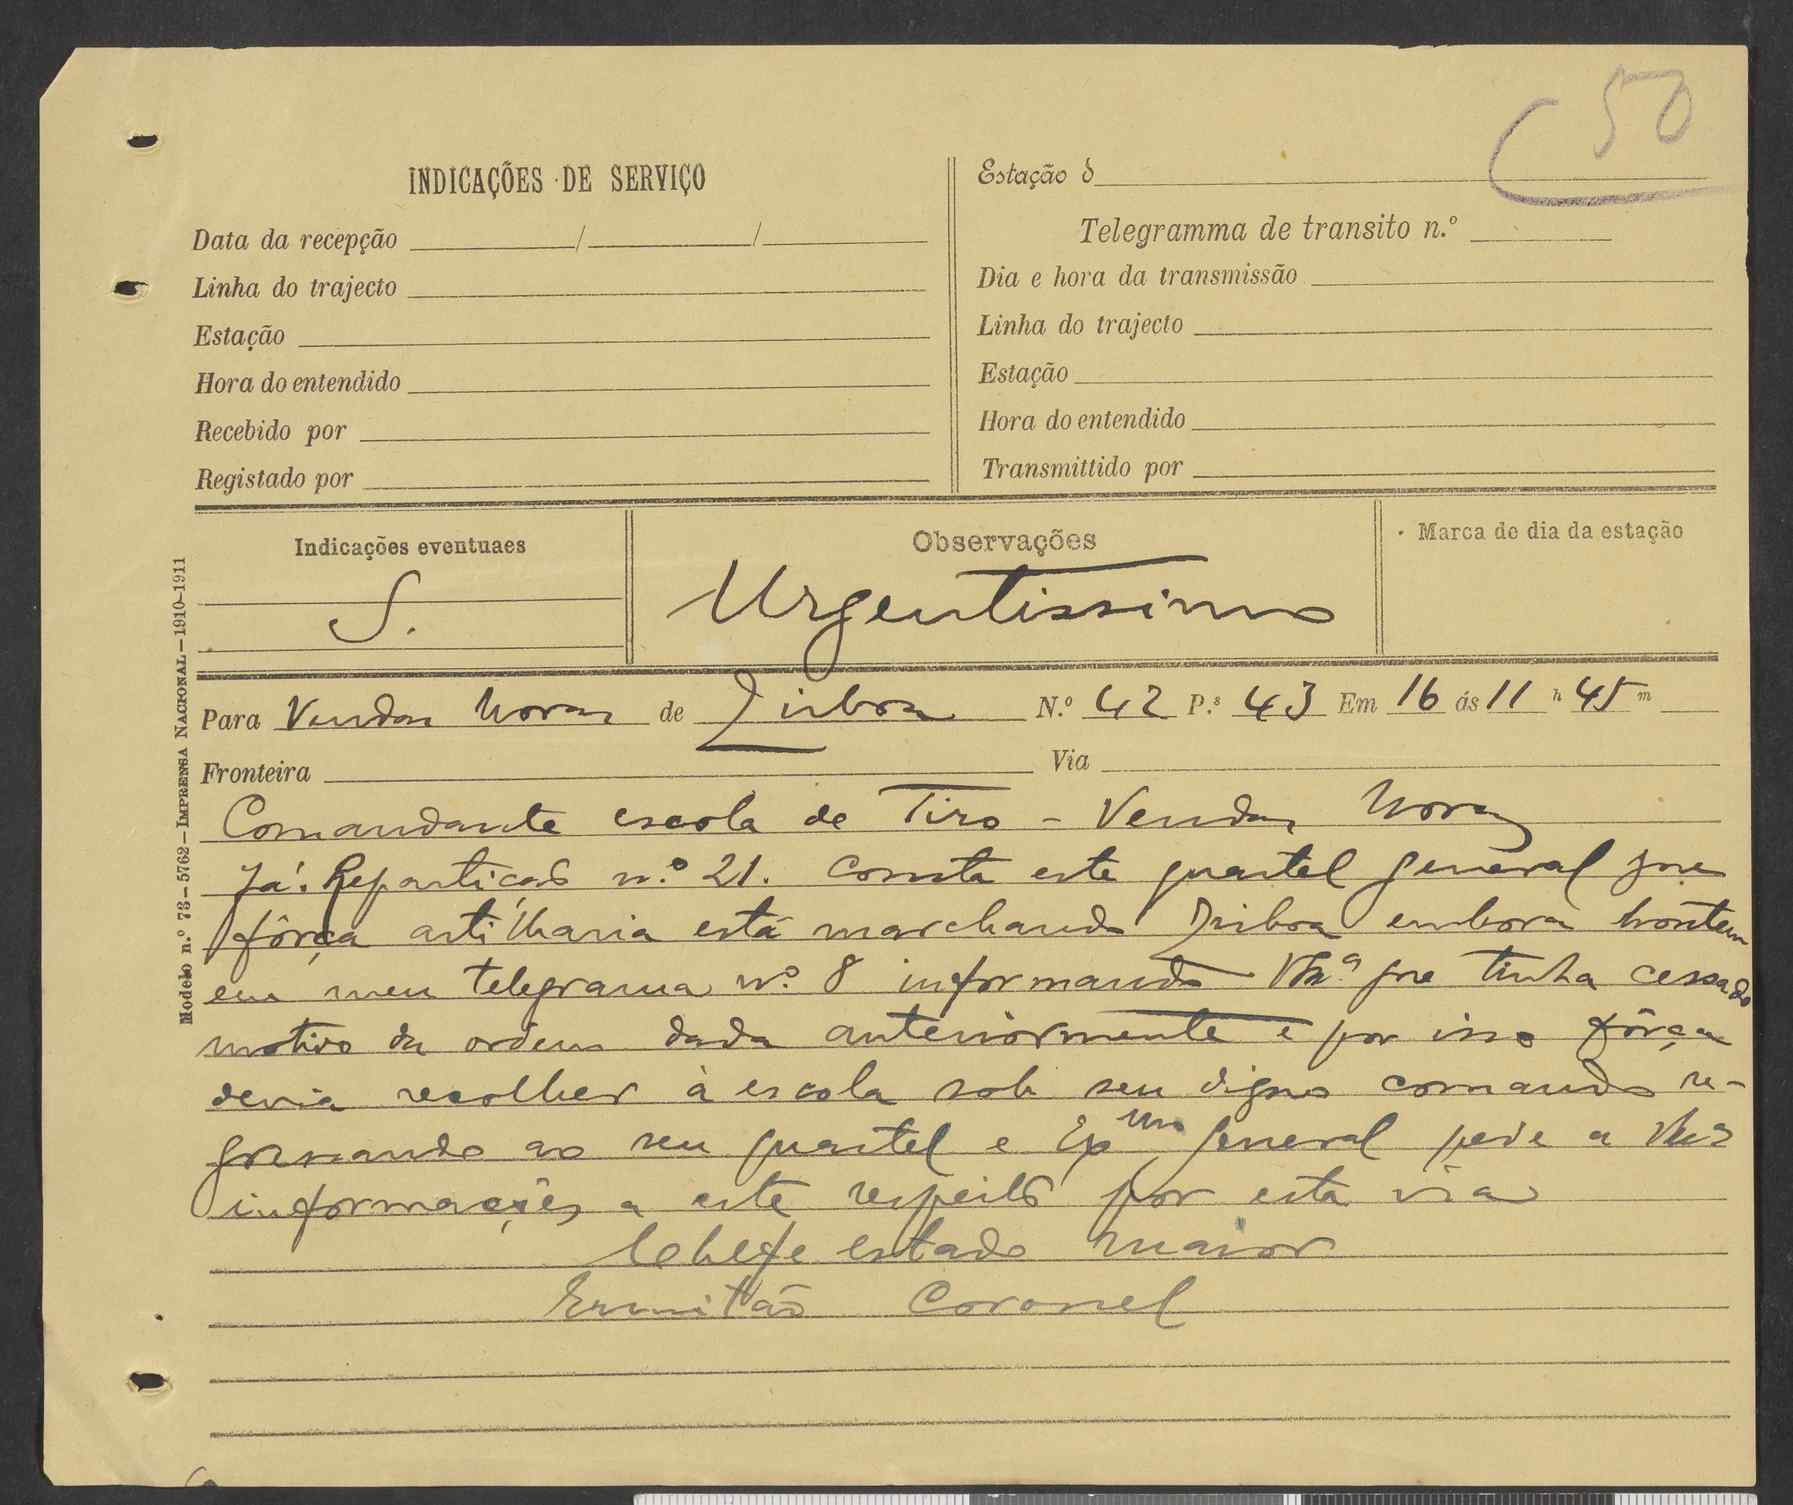 50
INDICAÇÕES DE SERVIÇO
Data da recepção / /
Linha do trajecto
Estação
Hora do entendido
Recebido por
Registado por
Estação d
Telegramma de transito n.º
Dia e hora da transmissão
Linha do trajecto
Estação
Hora do entendido
Transmittido por
Indicações eventuaes
S.
Observações
Urgentissimo
Marca de dia da estação
Modelo n.º 73—5762—IMPRENSA NACIONAL—1910-1911
Para Vendas Novas de Lisboa N.º 42 P.s 43 Em 16 ás 11 h 45 m
Fronteira Via
Comandante escola de Tiro - Vendas Novas
Repartição n.º 21. Consta este quartel general que
fôrça artilharia está marchando Lisboa embora hontem
em meu telegrama n.º 8 informando que tinha cessado
motivo da ordem dada anteriormente e por isso fôrça
devia recolher à escola sob seu digno comando re-
gressando ao seu quartel e Exmo general pede a
informações a este respeito por esta via
Chefe estado maior
Ermitão Coronel